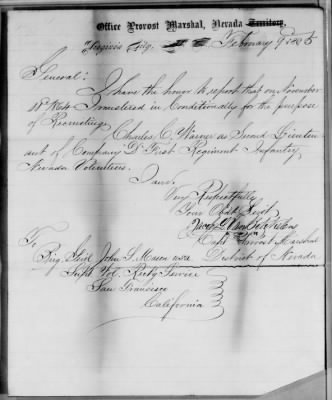 Office Provost Marshal, Nevada Territory.
Virginia City, February 9 1865
General:
I have the honor to report that on November
18" 1864 I mustered in Conditionally for the purpose
of Recruiting, Charles C. Warner as Second Lieuten
ant of Company "D" First Regiment Infantry
Nevada Volunteers.
I am,
Very Respectfully
Your Obdt Servt
Capt & Provost Marshal
District of Nevada
To
Brig. Genl John S. Mason USA
Supt Vol. Rectg Service
San Francisco
California